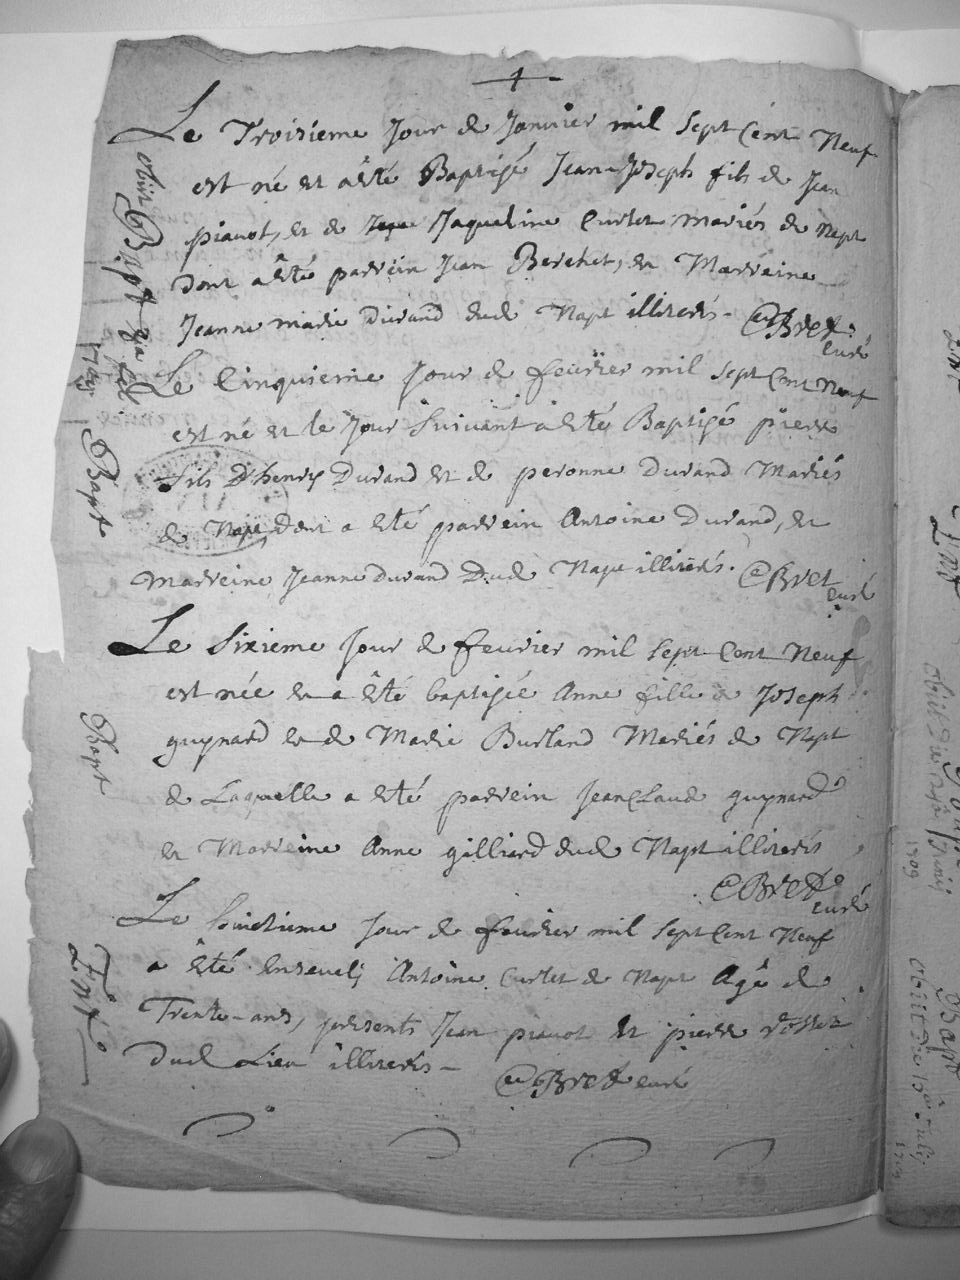 Le Troisieme Jour de Janvier mil sept Cent Neuf
est né et a êté Baptisé Jean Joseph fils de Jean
piavot, et de Jaqueline Curlet mariés de Napt
dont a êté parrein Jean Berchet, et Marreine
Jeanne marie Durand dud. Napt illiterés - Bret
curé
obiit
Bapt
Le Cinquieme Jour de feuvrier mil sept Cent Neuf
est né et le Jour suivant a êté Baptisé pierre
fils D'henry Durand et de peronne Durand Mariés
de Napt, dont a êté parrein Antoine Durand, et
Marreine Jeanne Durand Dud. Napt illiterés. Bret
curé
Bapt
Le Sixieme Jour de feuvrier mil sept Cent Neuf
est née et a êté baptisée Anne fille de Joseph
guynard et de Marie Burland Mariés de Napt
de Laquelle a êté parrein Jean Claude guynard
et Marreine Anne gilliard dud. Napt illiterés
Bret
curé
Bapt
Le huictieme Jour de feuvrier mil sept Cent Neuf
a êté Ensevely Antoine Curlet de Napt Agé de
Trente-ans, presents Jean piavot et pierre
dud. Lieu illiterés -
Bret curé
Ent